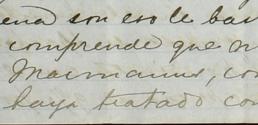 ena son eso le bas
comprende que n
Marmanus, con
haya tratado con